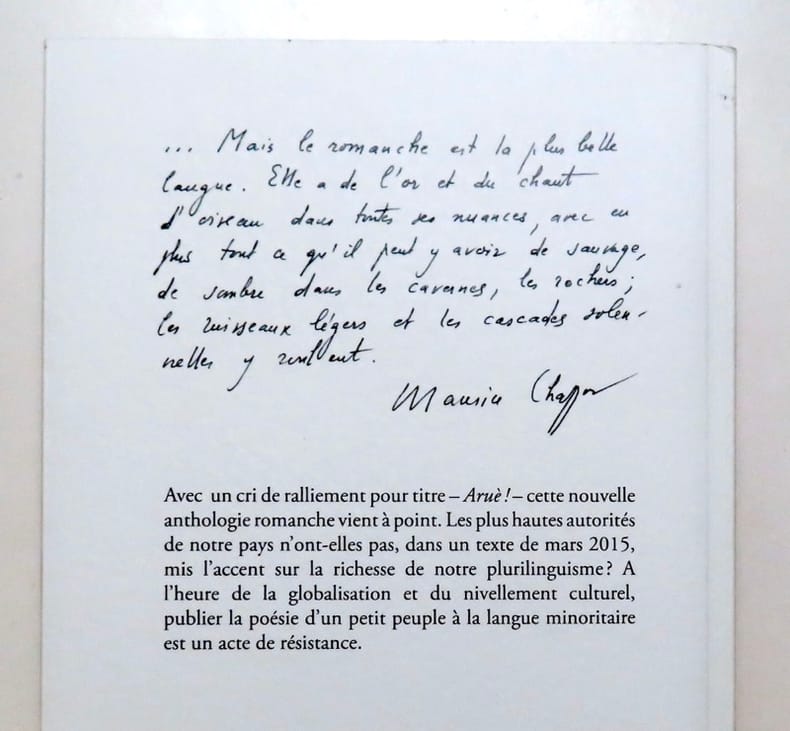 ... Mais le romanche est la plus belle
langue. Elle a de l'or et du chant
d'oiseau dans toutes ses nuances, avec en
plus tout ce qu'il peut y avoir de sauvage,
de sombre dans les cavernes, les rochers ;
les ruisseaux légers et les cascades solen-
nelles y roulent.
Maurice Chappaz
Avec un cri de ralliement pour titre – Aruè ! – cette nouvelle
anthologie romanche vient à point. Les plus hautes autorités
de notre pays n'ont-elles pas, dans un texte de mars 2015,
mis l'accent sur la richesse de notre plurilinguisme? A
l'heure de la globalisation et du nivellement culturel,
publier la poésie d'un petit peuple à la langue minoritaire
est un acte de résistance.